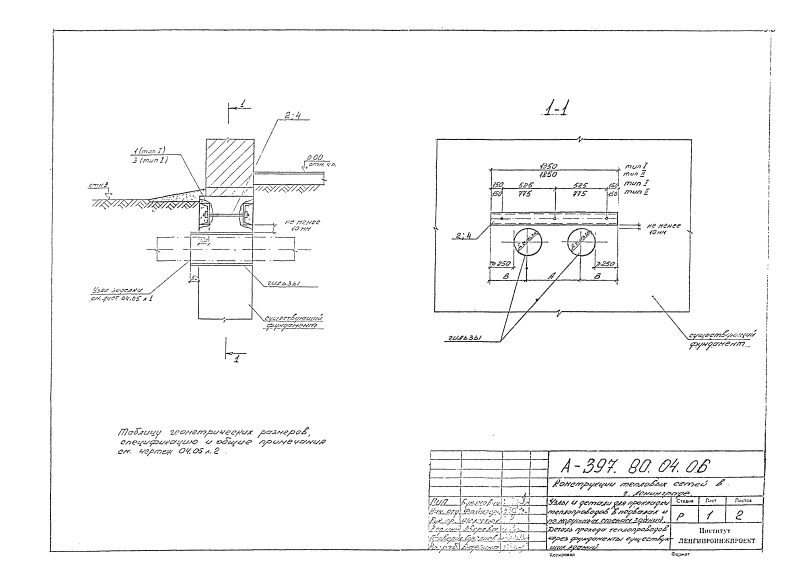 1
2:4
1 (тип I)
3 (тип I)
0.00
отм. ч.п.
отм.з
не менее
10 мм
50
Узел заделки
см. лист 04.05 л 1
гильзы
существующий
фундамент
1
1-1
1350 тип I
1850 тип II
150 525 525 150 тип I
150 775 775 150 тип II
2:4
не менее
10 мм
≥250
≥250
В А В
гильзы
существующий
фундамент
Таблицу геометрических размеров,
спецификацию и общие примечания
см. чертеж 04.05 л. 2
А-397. 80. 04. 06
Конструкции тепловых сетей в
г. Ленинграде
Узлы и детали для прокладки
теплопроводов в подвалах и
по наружным стенам зданий.
Деталь прохода теплопроводов
через фундаменты существую-
щих зданий
Стадия Лист Листов
Р 1 2
Институт
ЛЕНГИПРОИНЖПРОЕКТ
ГИП
Копировал Формат